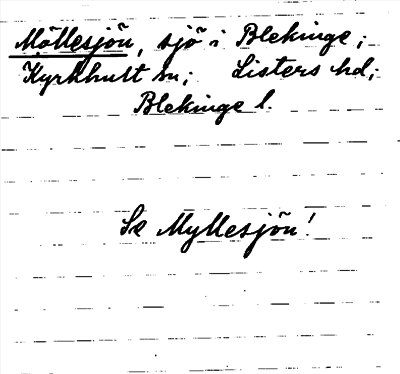 Möllesjön, sjö i Blekinge;
Kyrkhult sn; Listers hd;
Blekinge l.
Se Myllesjön!